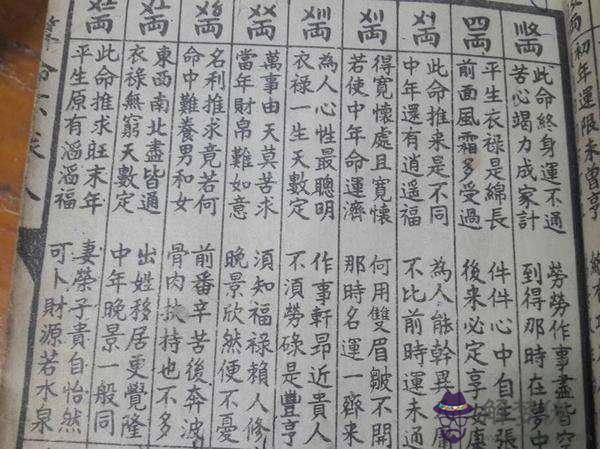 初年運限未曾亨
兩
此命終身運不通 勞勞作事盡皆空
苦心竭力成家計 到得那時在夢中
四兩
平生衣祿是綿長 件件心中自主張
前面風霜多受過 後來必定享安康
兩
此命推來是不同 為人能幹異
中年還有逍遥福 不比前時運未通
兩
得寬懷處且寬懷 何用雙眉皺不開
若使中年命運濟 那時名運一齊來
兩
為人心性最聰明 作事軒昂近貴人
衣祿一生天數定 不須勞碌是豐亨
兩
萬事由天莫苦求 須知福祿賴人修
當年財帛難如意 晚景欣然便不憂
兩
名利推求竟若何 前番辛苦後奔波
命中難養男和女 骨肉扶持也不多
兩
東西南北盡皆通 出姓移居更覺隆
衣祿無窮天數定 中年晚景一般同
兩
此命推求旺末年 妻榮子貴自怡然
平生原有滔滔福 可卜財源若水泉